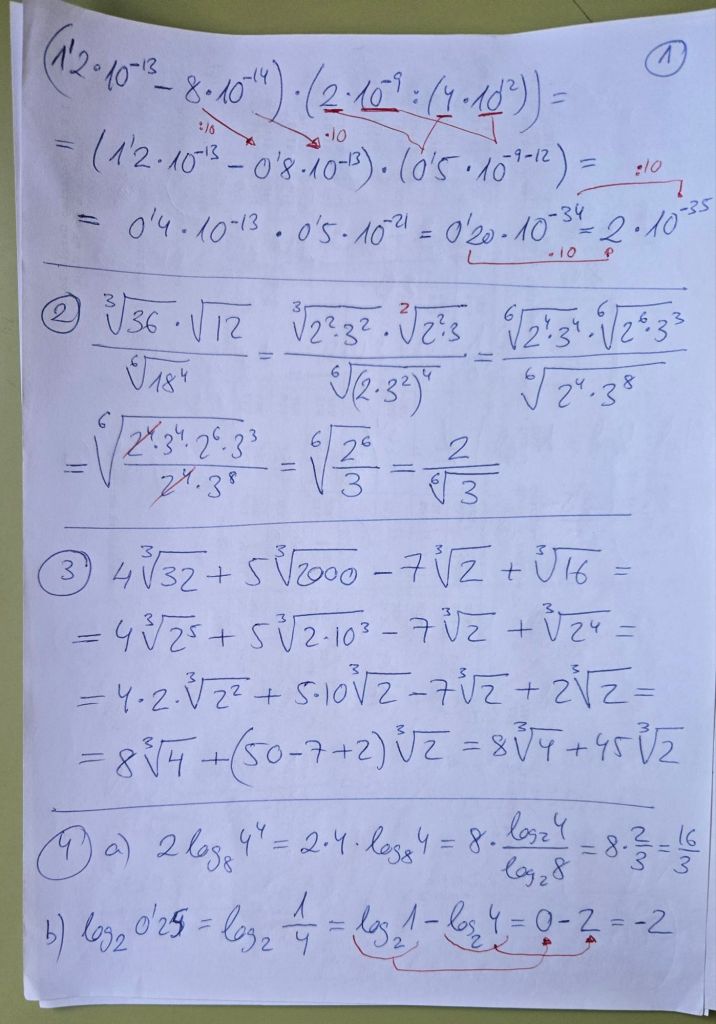 ①
(1'2·10⁻¹³ − 8·10⁻¹⁴)·(2·10⁻⁹ : (4·10¹²)) =
:10 ·10
= (1'2·10⁻¹³ − 0'8·10⁻¹³)·(0'5·10⁻⁹⁻¹²) =
:10
= 0'4·10⁻¹³ · 0'5·10⁻²¹ = 0'20·10⁻³⁴ = 2·10⁻³⁵
·10
② (∛36 · √12) / ⁶√18⁴ = (∛2²·3² · ²√2²·3) / ⁶√(2·3²)⁴ = (⁶√2⁴·3⁴ · ⁶√2⁶·3³) / ⁶√2⁴·3⁸
= ⁶√((2⁴·3⁴·2⁶·3³) / (2⁴·3⁸)) = ⁶√(2⁶/3) = 2 / ⁶√3
③ 4∛32 + 5∛2000 − 7∛2 + ∛16 =
= 4∛2⁵ + 5∛2·10³ − 7∛2 + ∛2⁴ =
= 4·2·∛2² + 5·10∛2 − 7∛2 + 2∛2 =
= 8∛4 + (50−7+2)∛2 = 8∛4 + 45∛2
④ a) 2 log₈ 4⁴ = 2·4·log₈ 4 = 8 · (log₂ 4 / log₂ 8) = 8·2/3 = 16/3
b) log₂ 0'25 = log₂ 1/4 = log₂ 1 − log₂ 4 = 0 − 2 = −2